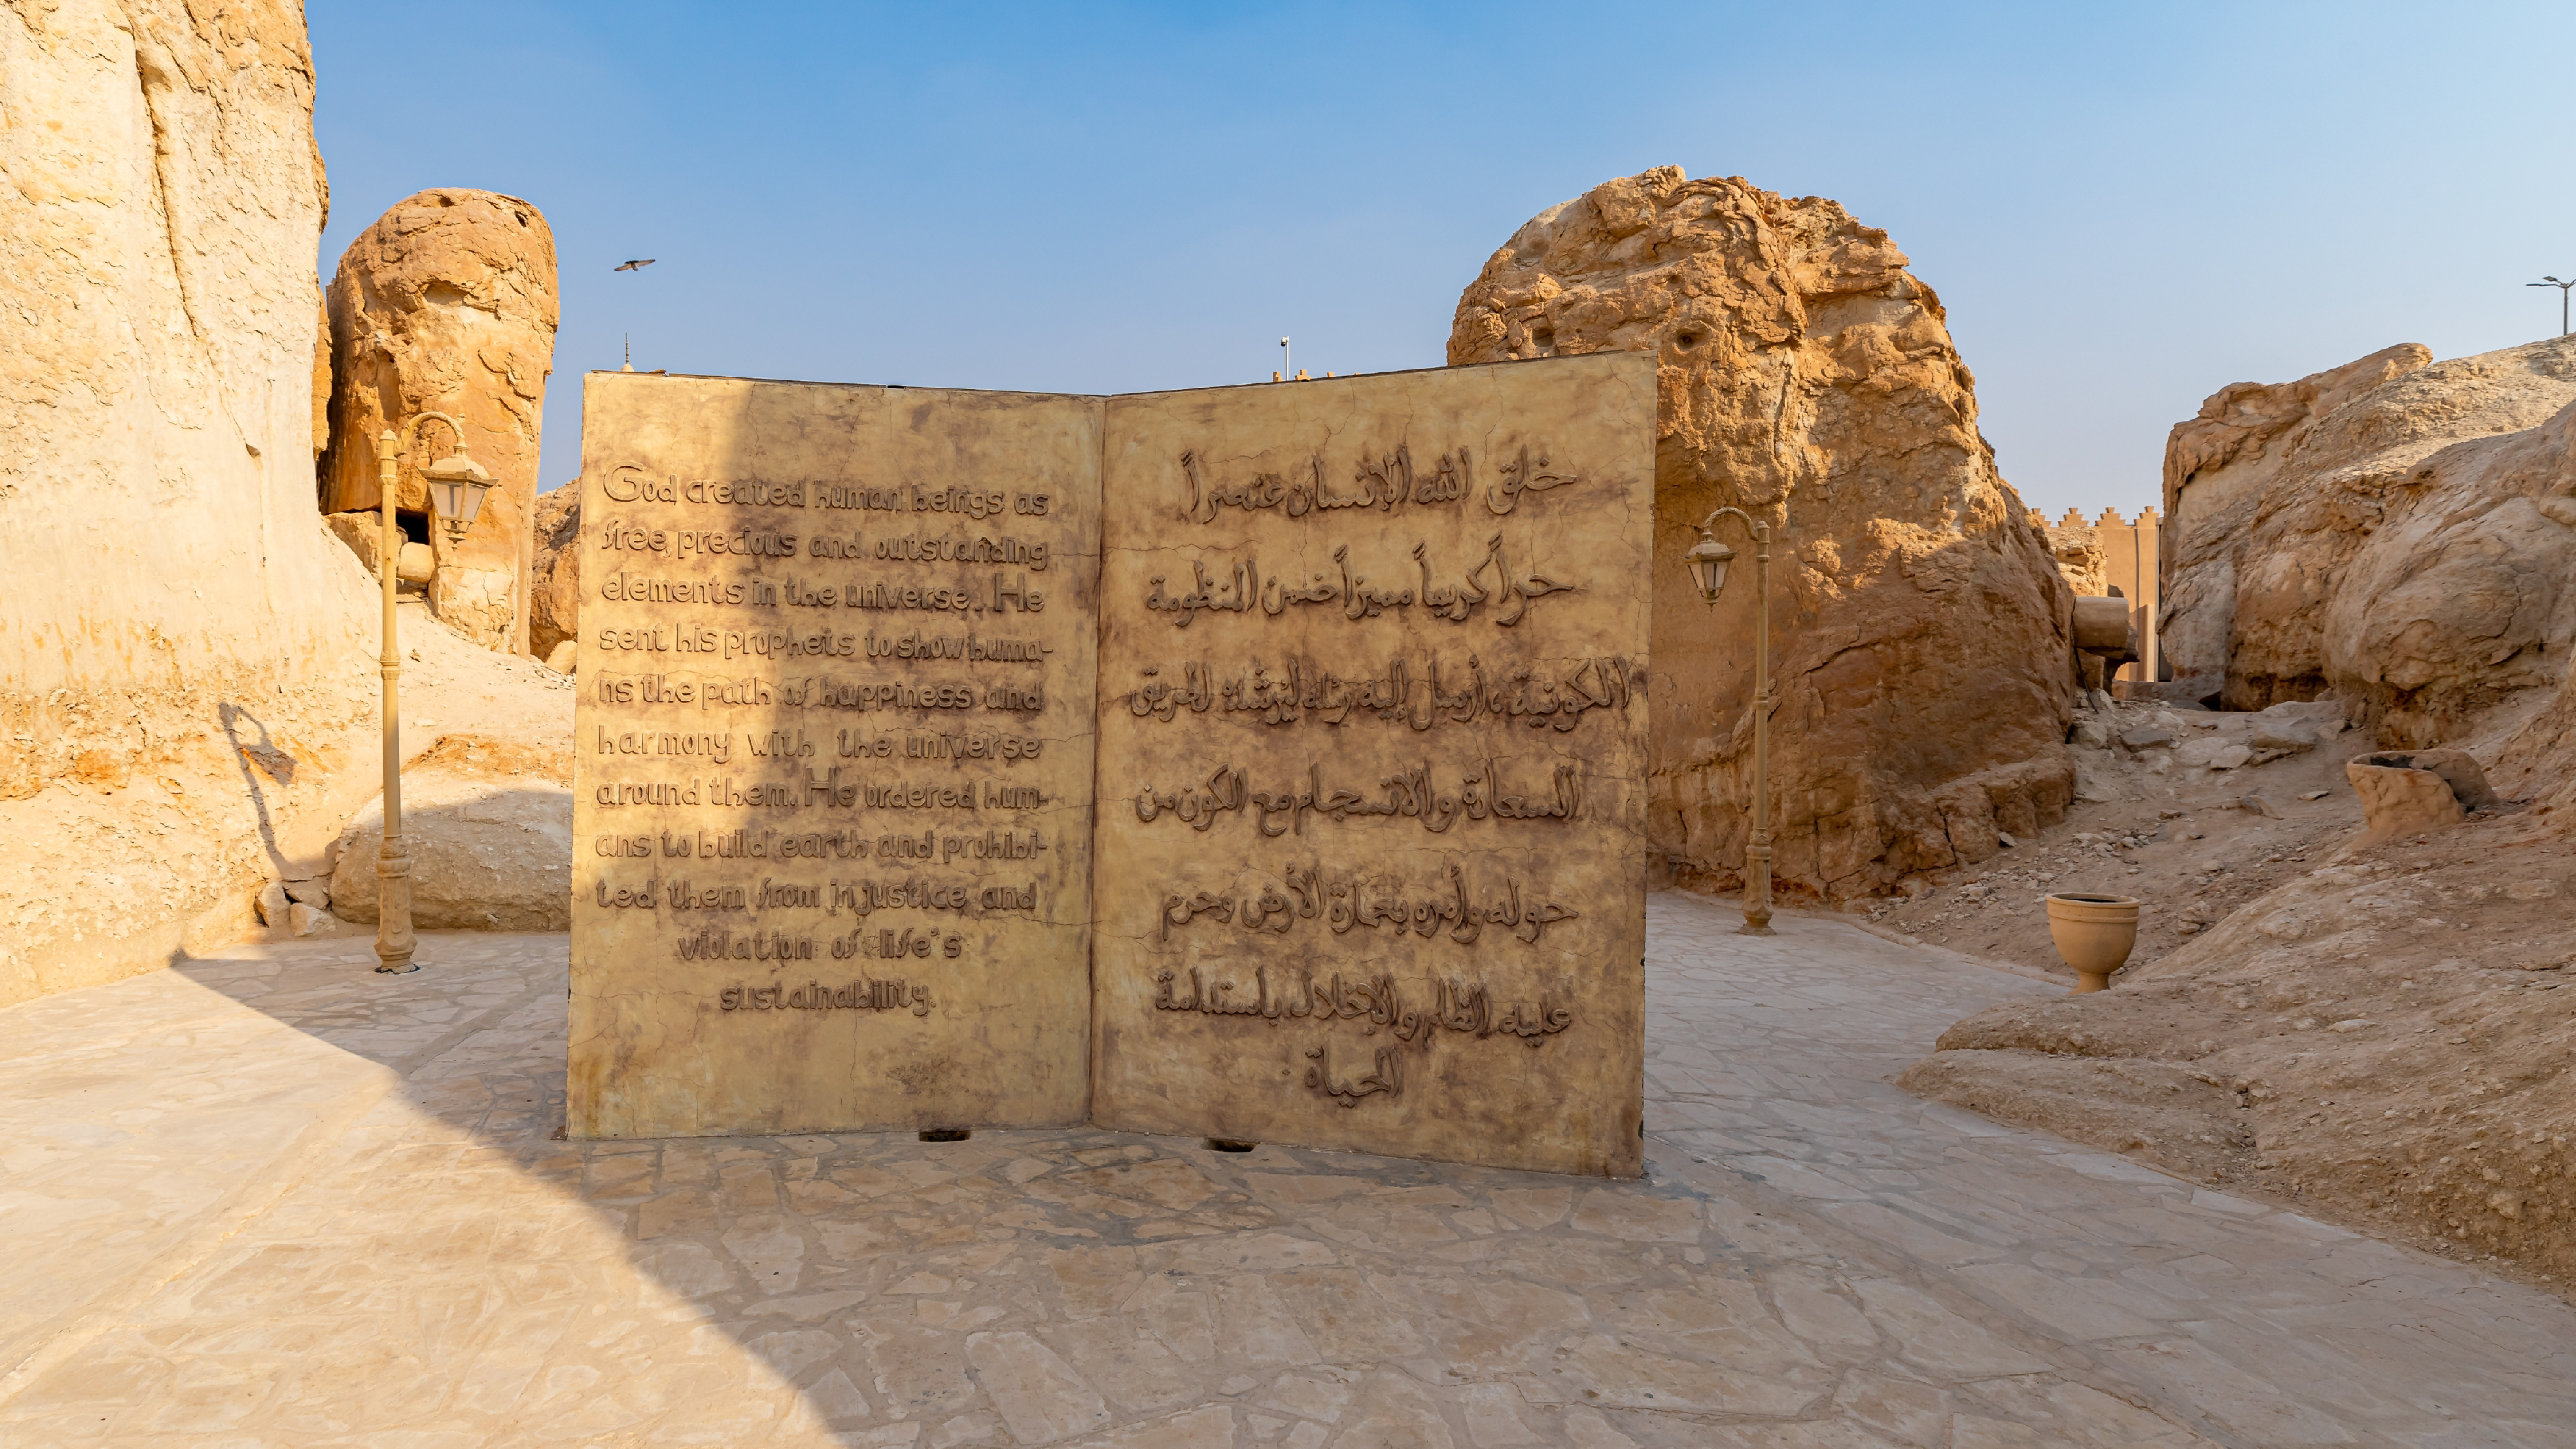 God created human beings as
free, precious and outstanding
elements in the universe. He
sent his prophets to show huma-
ns the path of happiness and
harmony with the universe
around them. He ordered hum-
ans to build earth and prohibi-
ted them from injustice and
violation of life's
sustainability.
خلق الله الإنسان عنصراً
حراً كريماً مميزاً ضمن المنظومة
الكونية، أرسل إليه رسله ليرشده لطريق
السعادة والانسجام مع الكون من
حوله وأمره بعمارة الأرض وحرم
عليه الظلم والإخلال باستدامة
الحياة